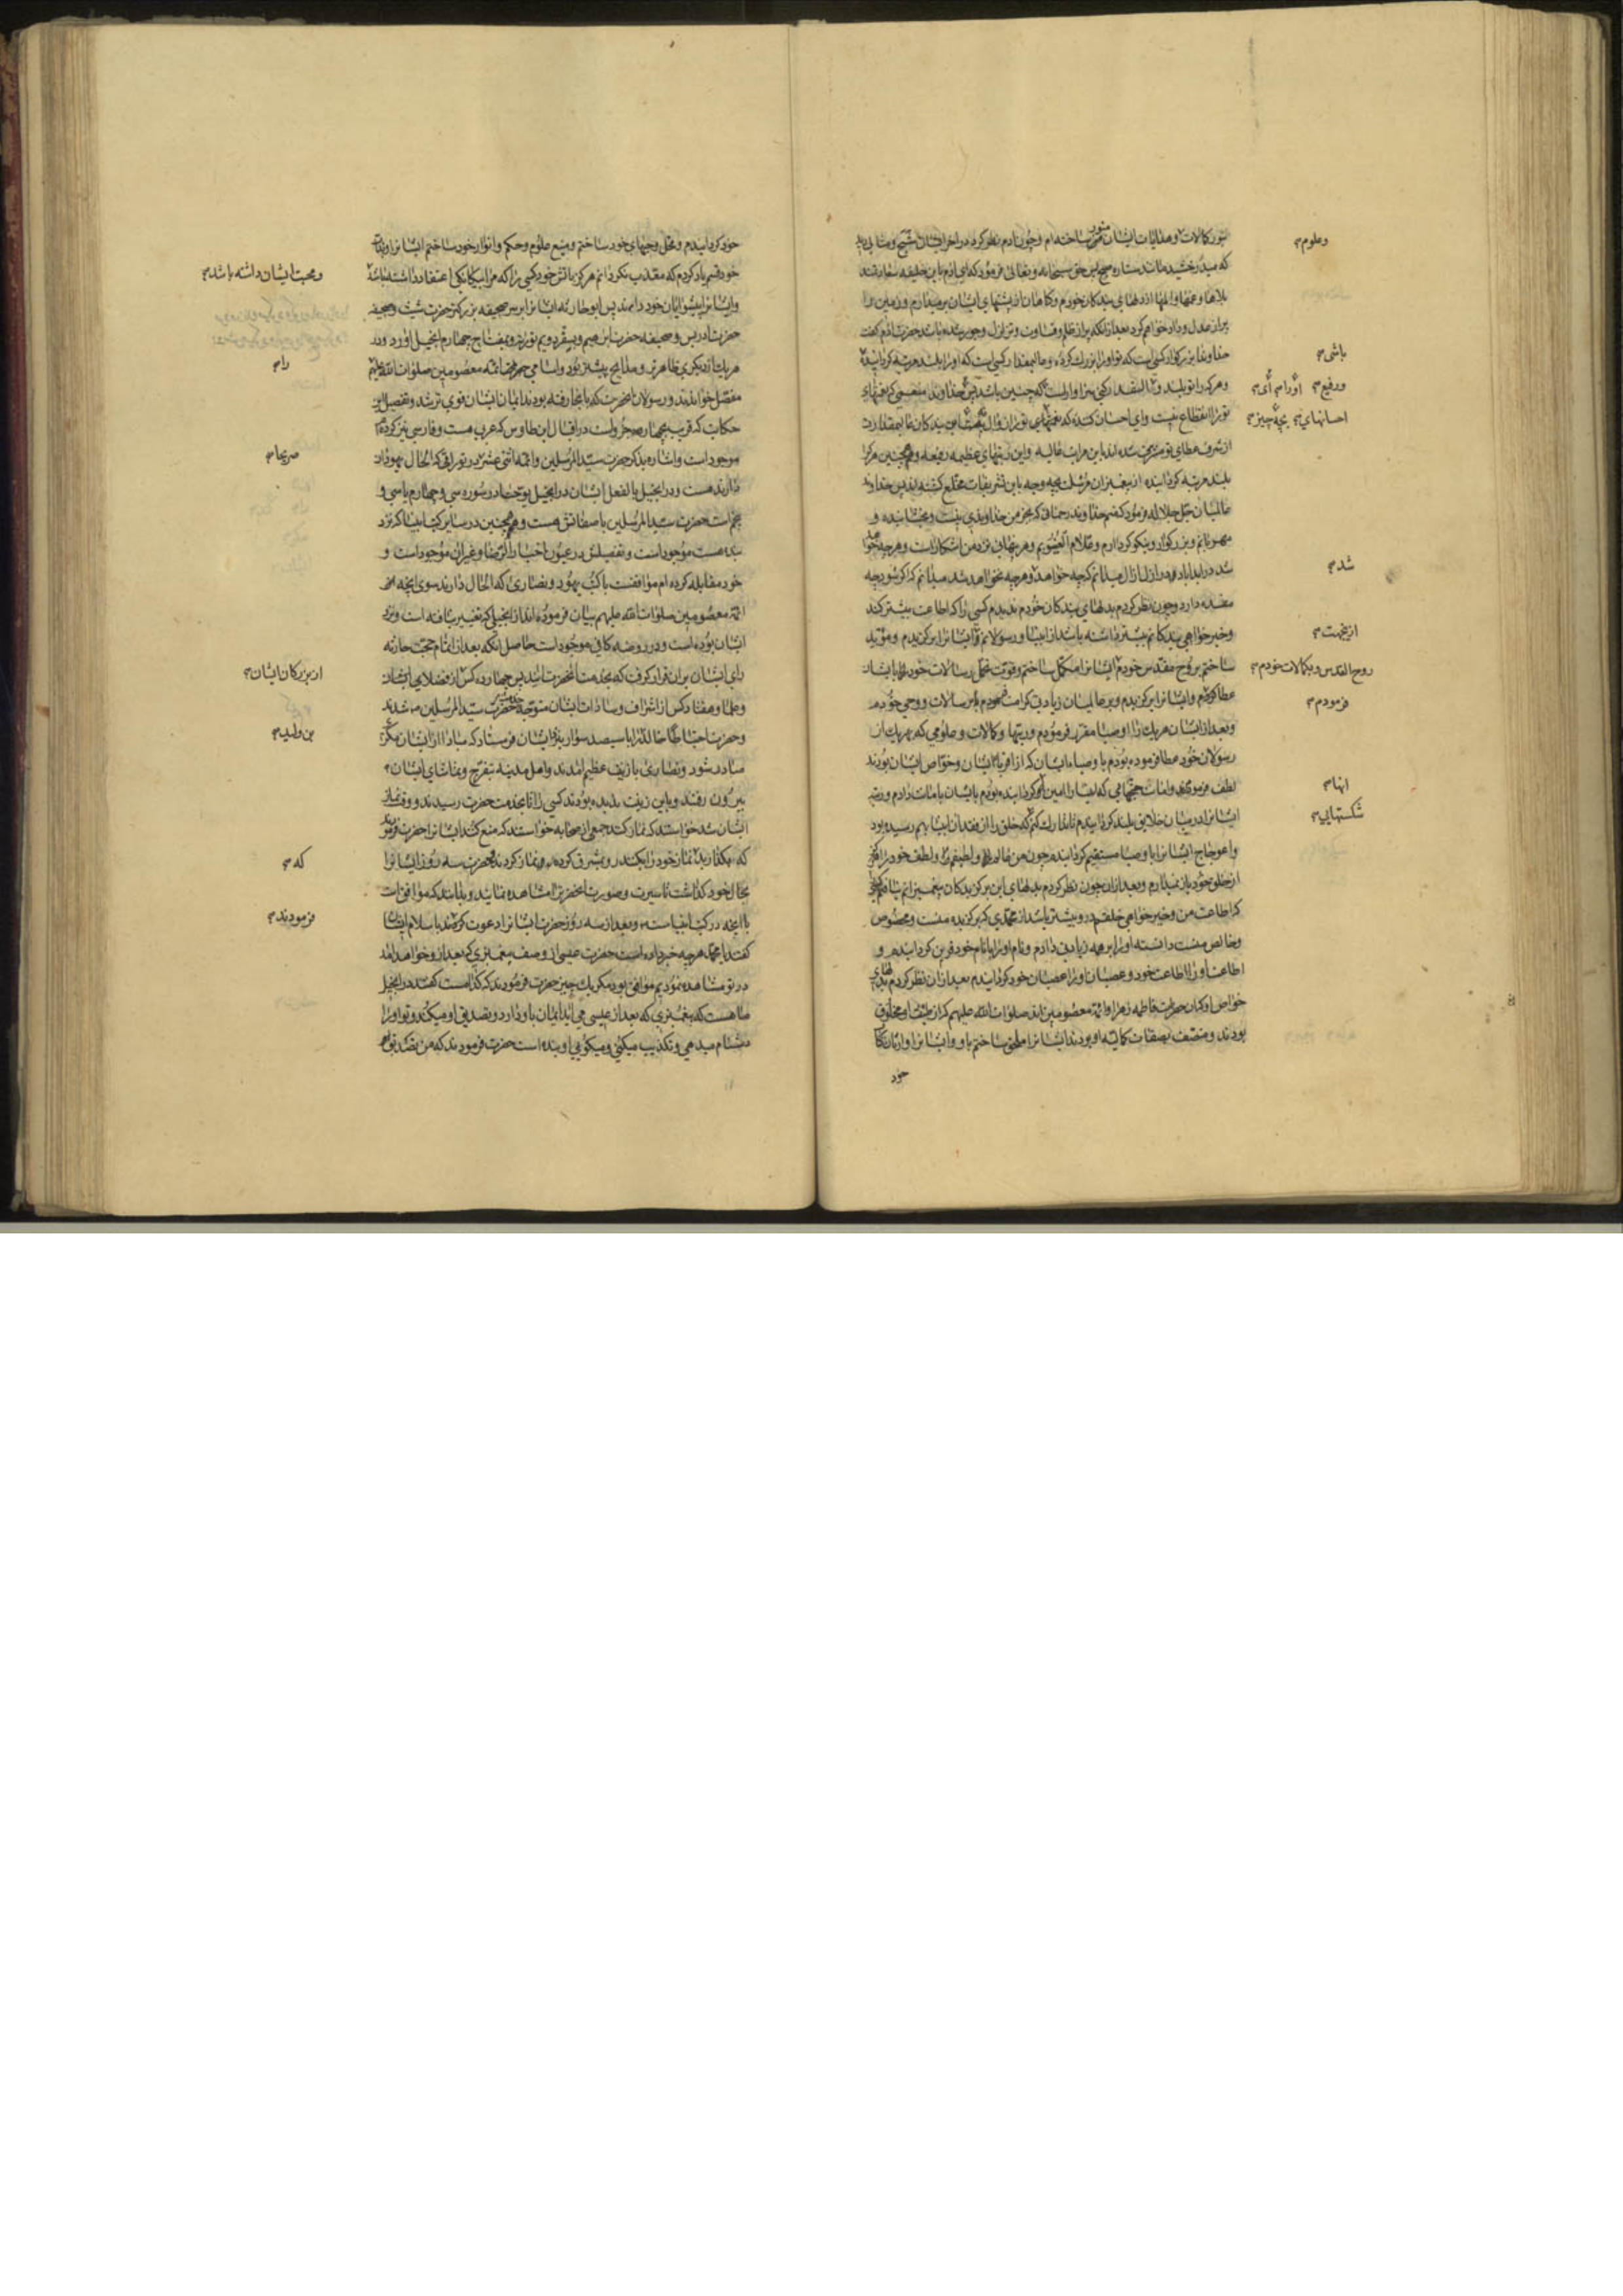 بنور کمالات و هدایات ایشان منور ساخته ام و چون آدم نظر کرد در آخر ایشان شبح و مثالی دید
که میدرخشید مانند ستاره صبح پس حق سبحانه و تعالی فرمود که ای آدم باین خلیفه سعادتمند
بلاها و غمها و المها از دلهای بندگان خود و گناهان از پشتهای ایشان برمیدارم و زمین را
پر از عدل و داد خواهم کرد بعد از آنکه پر از ظلم و قساوت و تزلزل و جور شده باشد حضرت آدم گفت
خداوندا بزرگوار کسی است که تو او را بزرگ کرده و عالیمقدار کسی است که او را بلند مرتبه گردانیده
و هرکه را تو بلند و عالیقدر کنی سزاوار است که چنین باشد ای خداوند منعمی که نعمتهای
تو را انقطاع نیست و ای احسان کننده که نعمتهای تو زوال
از شرف عطای تو مشرف شده اند باین مراتب عالیه و این رتبهای عظیمه رفیعه و همچنین هرکرا
بلند مرتبه گردانیده از پیغمبران مرسل بچه وجه باین تشریفات مخلع گشته اند پس خداوند
عالمیان جل جلاله فرمود که منم خداوند رحمانی که بجز من خداوندی نیست و بخشاینده و
مهربانم و بزرگوار و نیکو کردارم و علام الغیوبم و هر پنهان نزد من آشکار است و هرچه خواهد
شد در ابد آباد در ازل ازال میدانم که چه خواهد و هرچه نخواهد شد میدانم که اگر شود چه
مفسده دارد و چون نظر کردم بدلهای بندگان خودم ندیدم کسی را که اطاعت بیشتر کند
و خیرخواهی بندگانم بیشتر داشته باشد از انبیا و رسولانم و ایشانرا برگزیدم و مؤید
ساختم بروح مقدس خودم ایشانرا مکمل ساختم و قوت تحمل رسالات خود را بایشان
عطا کردم و ایشانرا برگزیدم و بر عالمیان زیادتی کرامت فرمودم باین رسالات و وحی خودم
و بعد از ایشان هریک را اوصیا مقرر فرمودم و رتبها و کمالات و علومی که بهریک از
رسولان خود عطا فرموده بودم باوصیاء ایشان که از اقربا ایشان و خواص ایشان بودند
لطف فرمودم و امانات حجتهامی که انبیا را امین گردانیده بودم بایشان بامانت دادم و رتبه
ایشانرا در میان خلایق بلند گردانیدم تا تدارک کنم که خلق را از فقدان انبیا بهم رسیده بود
و اعوجاج ایشانرا باوصیا مستقیم گردانیدم چون من عالم و لطیفم و لطف خود را هرگز
از خلق خود باز نمیدارم و بعد از آن چون نظر کردم بدلهای این برگزیدگان پیغمبرانم نیافتم کسی
که اطاعت من و خیرخواهی خلقم در و بیشتر باشد از محمدی که برگزیده منست و مخصوص
و خالص منست دانسته او را بر همه زیادتی دادم و نام او را با نام خود قرین گردانیدم و
اطاعت او را اطاعت خود و عصیان او را عصیان خود گردانیدم بعد از آن نظر کردم بدلهای
خواص او که آن حضرات فاطمه زهرا و ائمه معصومین اند صلوات الله علیهم که از طینت او مخلوق
بودند و متصف بصفات کمالیه او بودند ایشانرا ملحق ساختم باو و ایشانرا وارثان
خود
و علوم
باشی
و رفیع
او را ای
احسانهای
بچه چیز
شد
ازینجهت
روح القدس و بکمالات خودم
فرمودم
انها
شکستهایی
خود گردانیدم و محل وحیهای خود ساختم و منبع علوم و حکم و انوار خود ساختم ایشانرا و بذات
خود قسم یاد کردم که معذب نگردانم هرگز باتش خود کسی را که مرا بیگانگی اعتقاد داشته باشد
و ایشانرا پیشوایان خود داند پس ابو حارثه ایشانرا بر سر صحیفه بزرگتر حضرت شیث و صحیفه
حضرت ادریس و صحیفه حضرت ابرهیم و بسفر دویم تورات و بمفتاح چهارم انجیل آورد و در
هریک از دیگری ظاهرتر و مدایح بیشتر بود و اسامی حضرات ائمه معصومین صلوات الله علیهم
مفصل خواندند و رسولان آنحضرت که بانجا رفته بودند ایمان ایشان قوی تر شد و تفصیل این
حکایت که قریب بچهار صد جزو است در اقبال ابن طاوس که عربی هست و فارسی نیز کرده
موجود است و اشاره بذکر حضرت سید المرسلین و ائمه اثنی عشر در توراتی که الحال یهودان
دارند هست و در انجیل بالفعل ایشان در انجیل یوحنا در سوره سی و چهارم یا سی و
پنجم است حضرت سید المرسلین با صفاتش هست و همچنین در سایر کتب انبیا که نزد
بنده هست موجود است و تفصیلش در عیون اخبار الرضا و غیر آن موجود است و
خود مقابله کرده ام موافقست با کتب یهود و نصاری که الحال دارند سوی آنچه
ائمه معصومین صلوات الله علیهم بیان فرموده اند از انجیلی که تغییر نیافته است و نزد
ایشان بوده است و در روضه کافی موجود است حاصل آنکه بعد از اتمام حجت حارثه
رای ایشان بران قرار گرفت که بخدمت آنحضرت آیند پس چهارده کس از فضلای ایشان
و علما و هفتاد کس از اشراف و سادات ایشان متوجه خدمت حضرت سید المرسلین شدند
و حضرت احتیاطا خالد را با سیصد سوار بنزد ایشان فرستاد که مبادا از ایشان مکری
صادر شود و نصاری با زینت عظیم آمدند و اهل مدینه بتفرج و تماشای ایشان
بیرون رفتند و باین زینت ندیده بودند کسی را تا بخدمت حضرت رسیدند و وقت نماز
ایشان شد خواستند که نماز کنند جمعی از صحابه خواستند که منع کنند ایشانرا حضرت فرمودند
که بگذارید نماز خود را بکنند رو بمشرق کرده نماز کردند حضرت سه روز ایشانرا
بحال خود گذاشت تا سیرت و صورت آنحضرترا مشاهده نمایند و بیابند که موافق است
با آنچه در کتب انبیاست و بعد از سه روز حضرت ایشانرا دعوت کردند باسلام ایشان
گفتند یا محمد هرچه خبر داده است حضرت عیسی از وصف پیغمبری که بعد از و خواهد آمد
در تو مشاهده نمودیم موافق بود مگر یک چیز حضرت فرمودند که کدامست گفتند در انجیل
ما هست که پیغمبری که بعد از عیسی می آید ایمان باو دارد و تصدیق او میکند و تو او را
دشنام میدهی و تکذیب میکنی و میگویی او بنده است حضرت فرمودند که من تصدیق او
و محبت ایشان داشته باشد
را
صریحا
از بزرگان ایشان
بن ولید
که
فرمودند